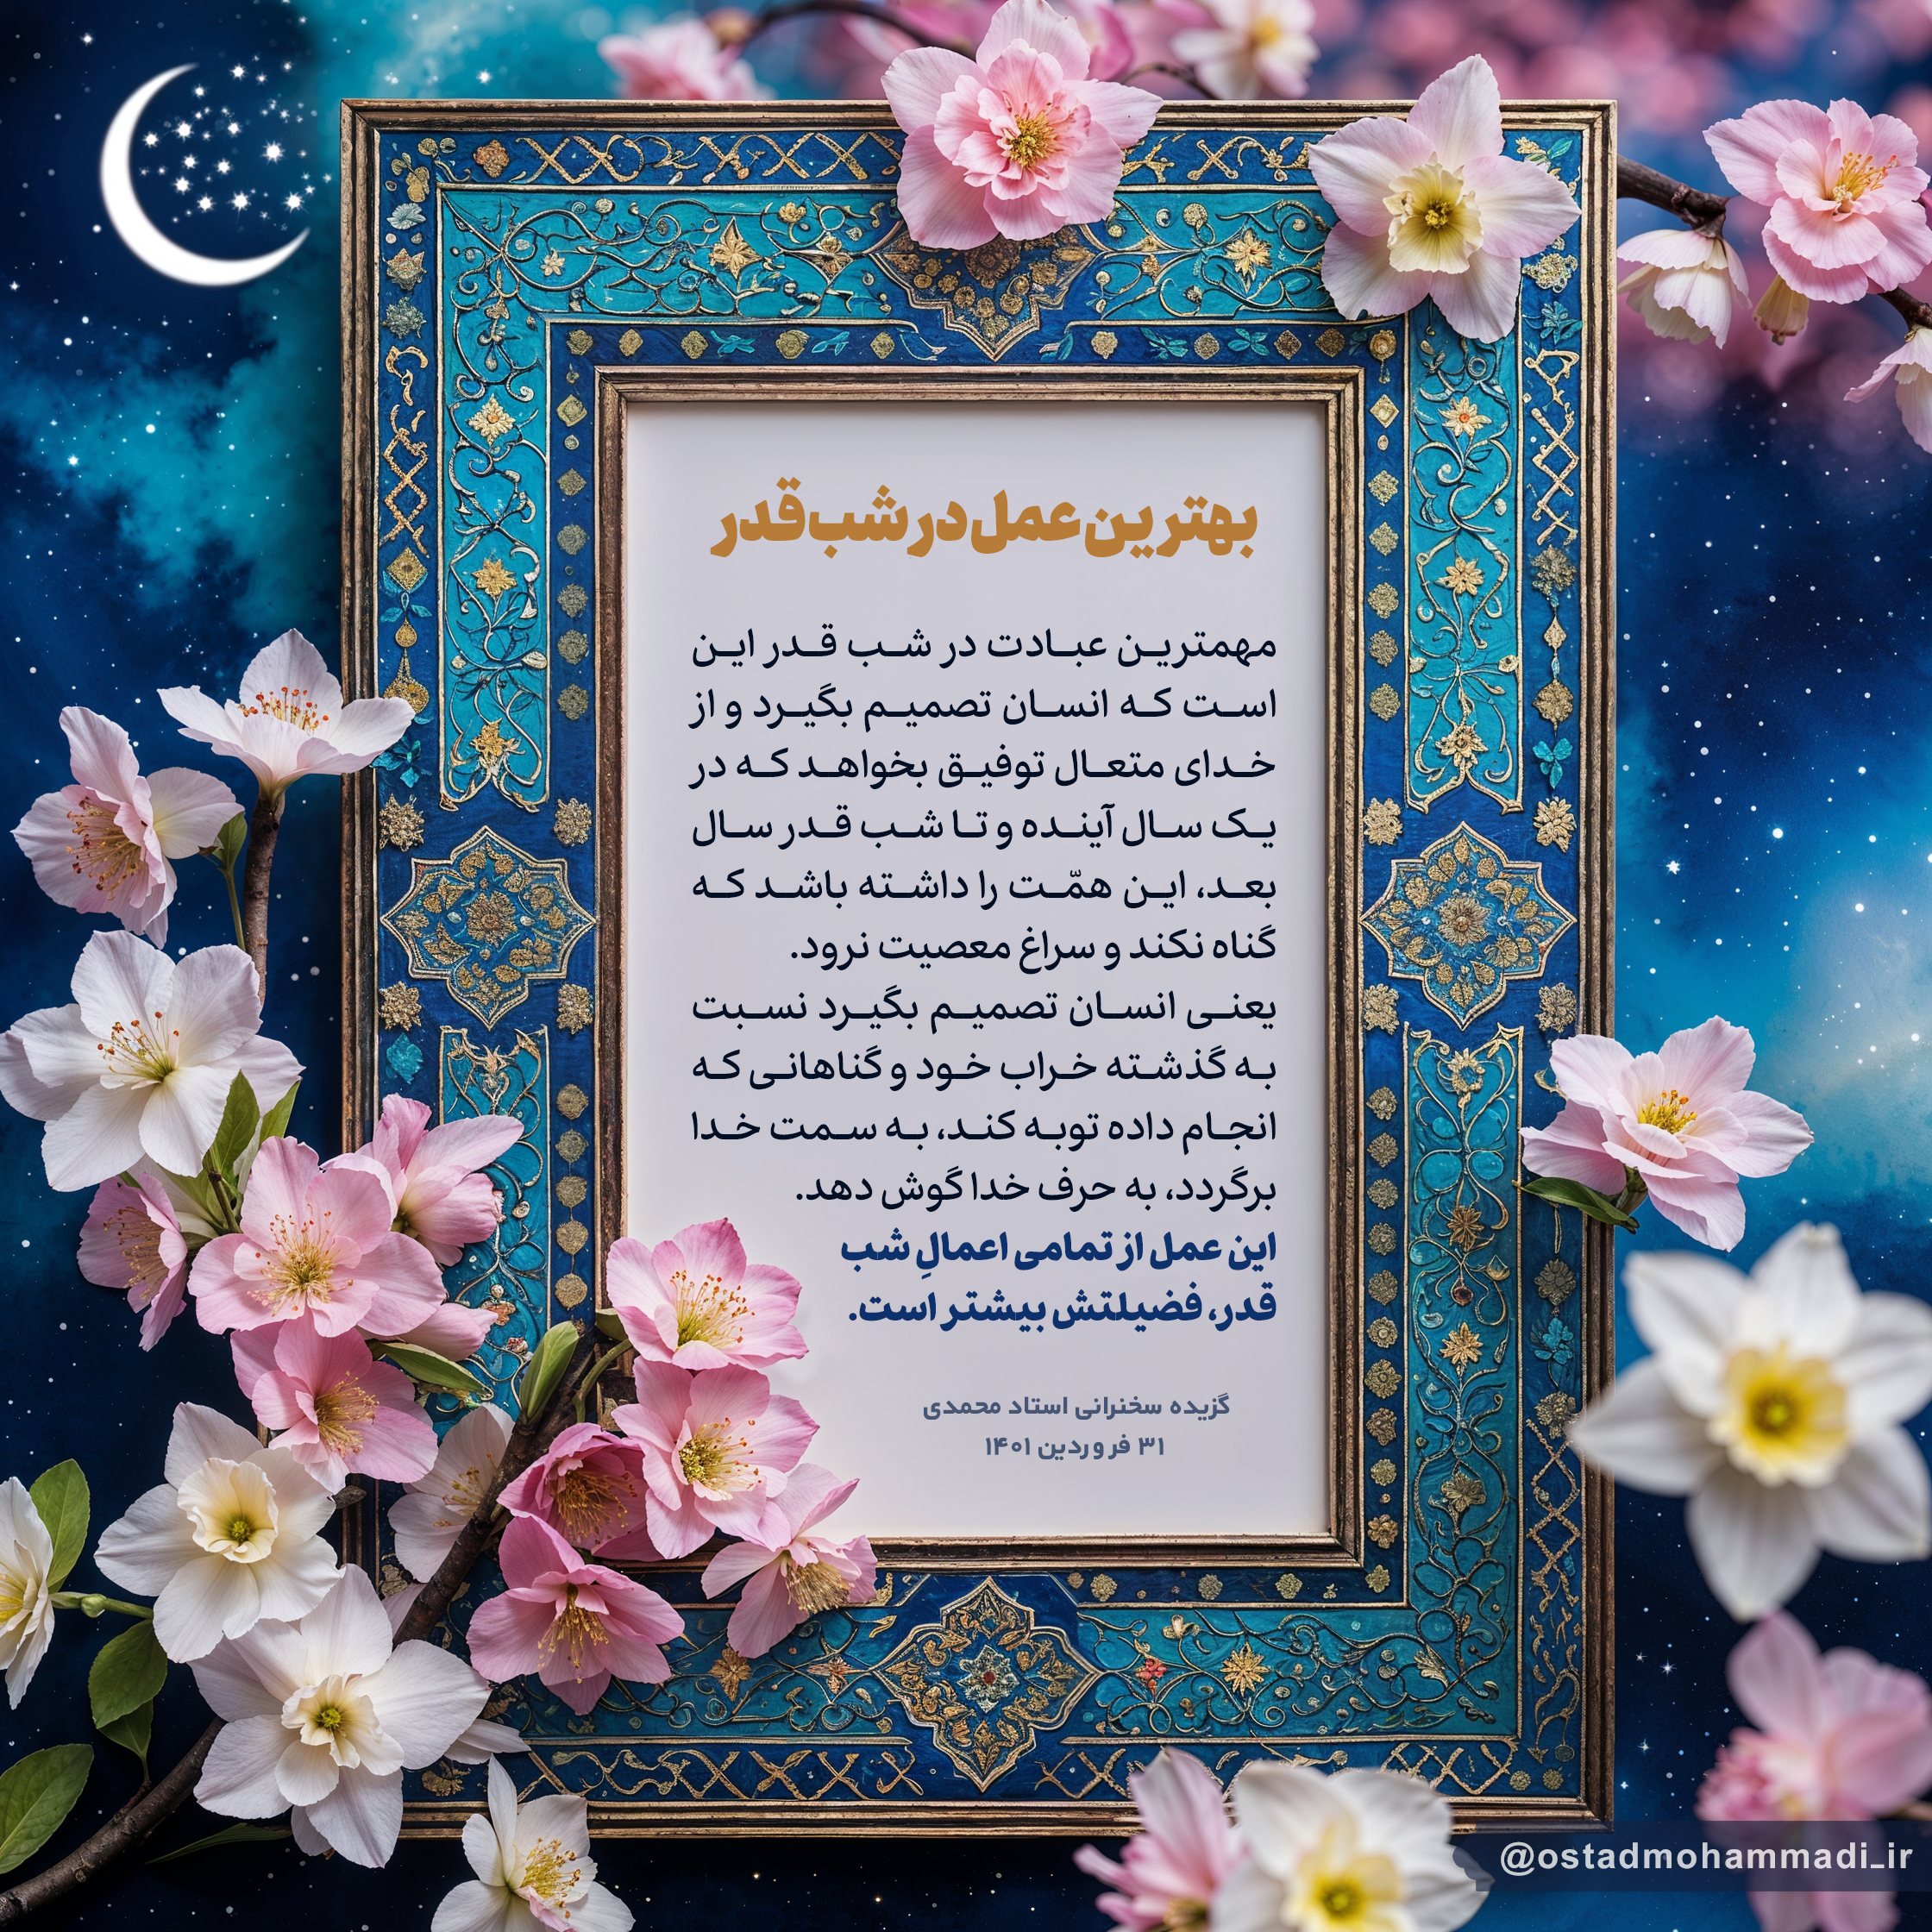 بهترین عمل در شب قدر
مهمترین عبادت در شب قدر این
است که انسان تصمیم بگیرد و از
خدای متعال توفیق بخواهد که در
یک سال آینده و تا شب قدر سال
بعد، این همّت را داشته باشد که
گناه نکند و سراغ معصیت نرود.
یعنی انسان تصمیم بگیرد نسبت
به گذشته خراب خود و گناهانی که
انجام داده توبه کند، به سمت خدا
برگردد، به حرف خدا گوش دهد.
این عمل از تمامی اعمالِ شب
قدر، فضیلتش بیشتر است.
گزیده سخنرانی استاد محمدی
۳۱ فروردین ۱۴۰۱
@ostadmohammadi_ir